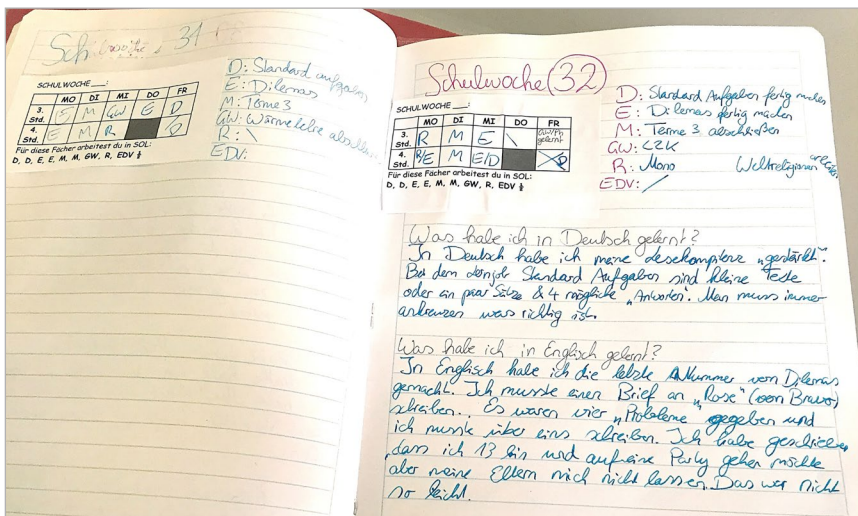 Schulwoche 31
SCHULWOCHE ___:
MO DI MI DO FR
3. Std. S M GW E D
4. Std. E M R D
Für diese Fächer arbeitest du in SOL:
D, D, E, E, M, M, GW, R, EDV ½
D: Standard aufgaben
E: Dilemas
M: Terme 3
GW: Wärmelehre
R: \
EDV:
Schulwoche (32)
SCHULWOCHE ___:
MO DI MI DO FR
3. Std. R M E \ GW/Ph gelernt
4. Std. R/E M E/D D
Für diese Fächer arbeitest du in SOL:
D, D, E, E, M, M, GW, R, EDV ½
D: Standard Aufgaben fertig machen
E: Dilemas fertig machen
M: Terme 3 abschließen
GW: LZK
R: Mono Weltreligionen
EDV: /
Was habe ich in Deutsch gelernt?
In Deutsch habe ich meine lesekompetenz „gestärkt".
Bei dem Standard Aufgaben sind kleine Texte
oder ein paar Sätze & 4 mögliche „Antworten". Man muss immer
ankreuzen was richtig ist.
Was habe ich in Englisch gelernt?
In Englisch habe ich die letzte Nummer von Dilemas
gemacht. Ich musste einen Brief an „Rose" (von Bravo)
schreiben. Es waren vier „Probleme gegeben und
ich musste über eins schreiben. Ich habe geschrieben
dass ich 13 bin und auf eine Party gehen möchte
aber meine Eltern mich nicht lassen. Das war nicht
so leicht.